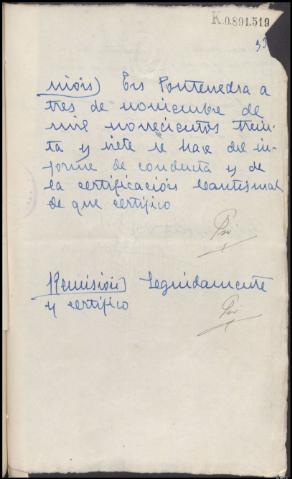 K.0.891.519
33
nión) En Pontevedra a
tres de noviembre de
mil novecientos trein-
ta y siete se hace del in-
forme de conducta y de
la certificación bautismal
de que certifico
Remisión) Seguidamente
y certifico